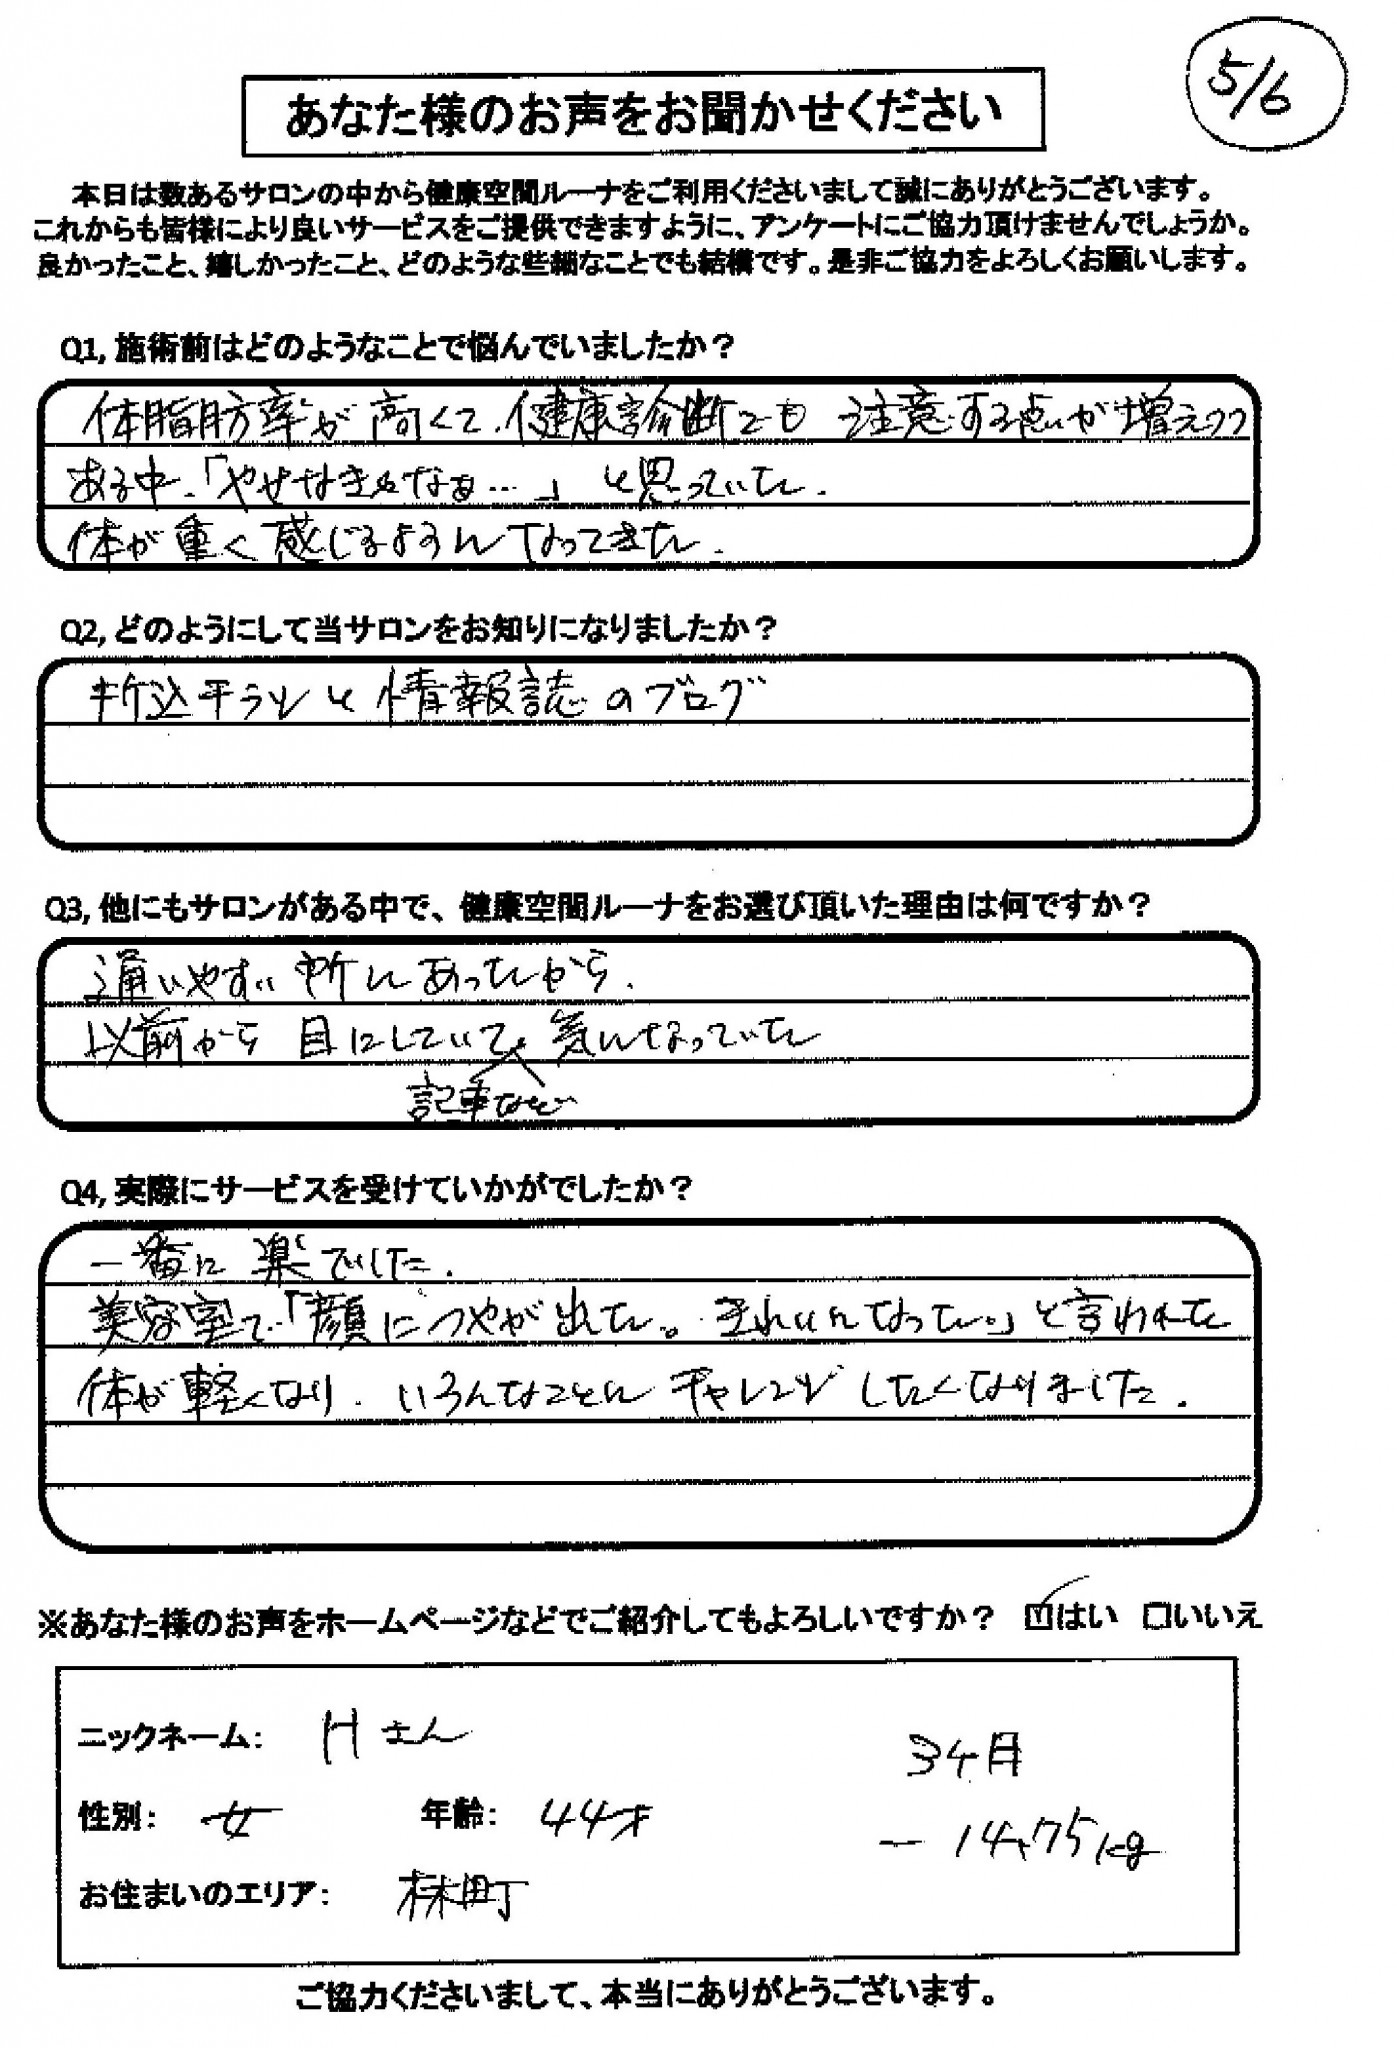 5/6
あなた様のお声をお聞かせください
本日は数あるサロンの中から健康空間ルーナをご利用くださいまして誠にありがとうございます。
これからも皆様により良いサービスをご提供できますように、アンケートにご協力頂けませんでしょうか。
良かったこと、嬉しかったこと、どのような些細なことでも結構です。是非ご協力をよろしくお願いします。
Q1, 施術前はどのようなことで悩んでいましたか？
体脂肪率が高くて、健康診断でも 注意する点が増えつつ
ある中、「やせなきゃなぁ…」と思っていた。
体が重く感じるようになってきた。
Q2, どのようにして当サロンをお知りになりましたか？
折込チラシと情報誌のブログ
Q3, 他にもサロンがある中で、健康空間ルーナをお選び頂いた理由は何ですか？
通いやすい所にあったから。
以前から目にしていて。気になっていた
記事など
Q4, 実際にサービスを受けていかがでしたか？
一番に楽でした。
美容室で「顔につやが出た。きれいになった。」と言われた
体が軽くなり、いろんなことにチャレンジしたくなりました。
※あなた様のお声をホームページなどでご紹介してもよろしいですか？ ☑はい □いいえ
ニックネーム： Hさん
3ヶ月
性別： 女 年齢： 44才
－14.75kg
お住まいのエリア： 林町
ご協力くださいまして、本当にありがとうございます。